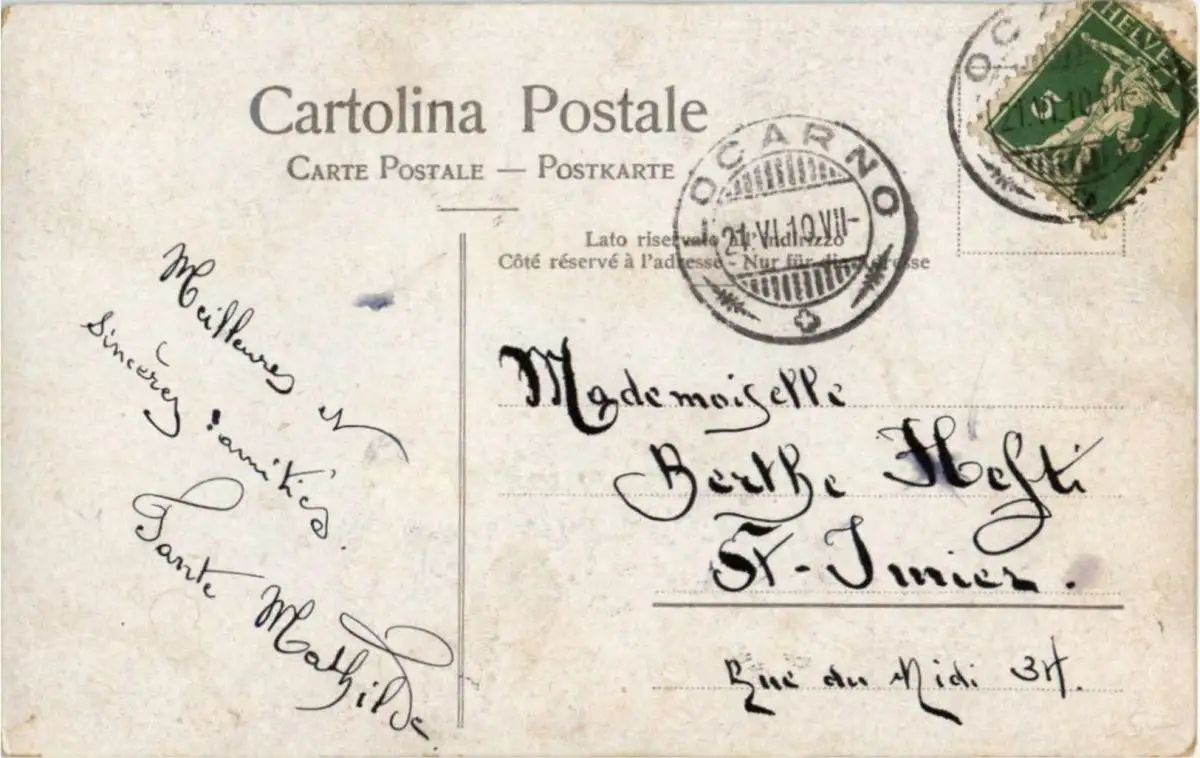 Cartolina Postale
CARTE POSTALE — POSTKARTE
Lato riservato all'indirizzo
Côté réservé à l'adresse - Nur für die Adresse
LOCARNO
21.VI.10.VII-
LOCARNO
21.VI.10.VII-
HELVETIA
5
Meilleures et
sincères amitiés
Tante Mathilde
Mademoiselle
Berthe Hefti
St-Imier.
Rue du Midi 34.